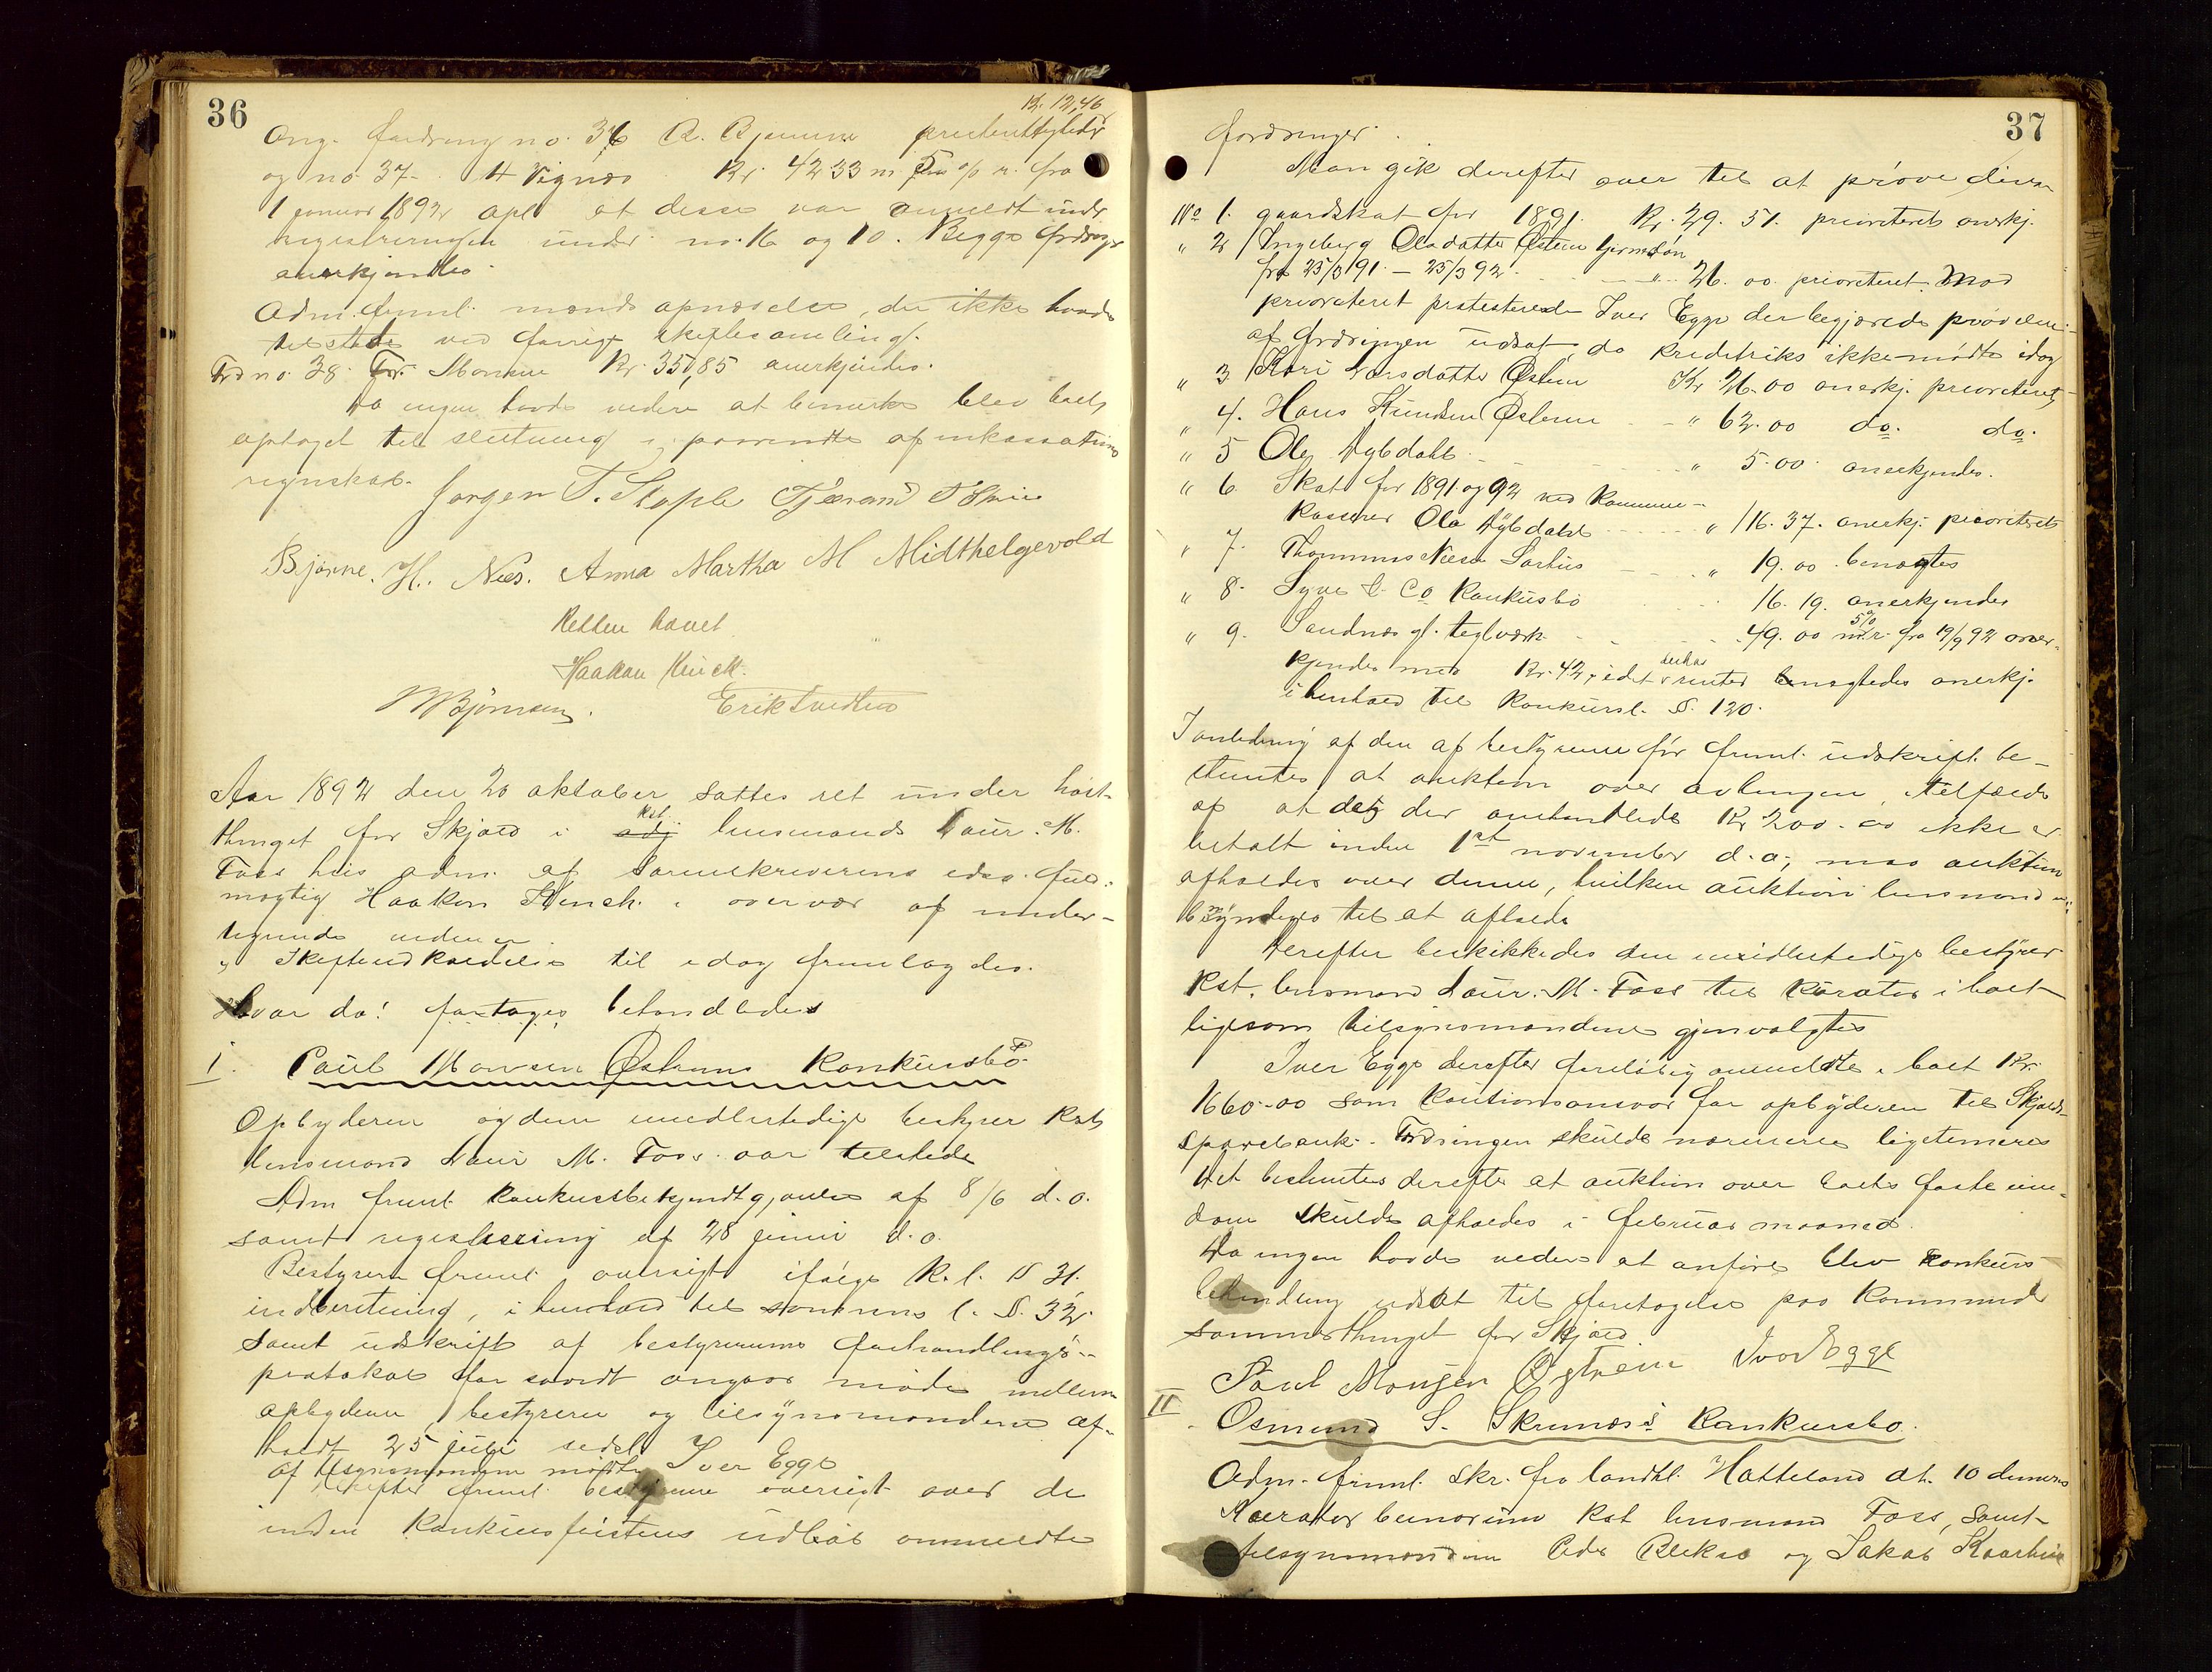 36
Kr. 12,46
Ang. fordring no. 36 A. Bjønnem
og no 37. H Vignes Kr. 4233 m 5 % r. fra
1 januar 1892 at disse var anmeldt under
registreringen under no. 16 og 10. Begge fordringer
anerkjendtes.
Adm. freml. mands opnævelse, der ikke havde
tilstede ved forrige skiftesamling.
Frd no. 38. Monsen Kr. 350,85 anerkjendes.
Da ingen havde videre at bemærke blev boet
optaget til slutning i paavente af inkassations
regnskab.
Jørgen T. Stople Tjæran
Bjørne. H. Nees. Anna Martha M Midthelgevold
Retten hævet
Haakon Kinck.
Bjørnsen. Erik Tvedten
Aar 1892 den 20 oktober sattes ret under høst-
thinget for Skjold i Kst. lensmand Laur. M.
Foss hus adm. af Sorenskriverens edsv. fuld-
mægtig Haakon Kinck i overvær af under-
tegnede vidner.
Skifteindkaldelse til idag fremlagdes.
Hvor da! foretoges behandledes
I. Paul Monsen Østrems konkursbo
Opbyderen og den midlertidige bestyrer kst
lensmand Laur M. Foss var tilstede
Adm freml. konkursbekjendtgjørelse af 8/6 d.a.
samt registrering af 28 juni d.a.
Bestyreren freml. oversigt ifølge K. l. § 31.
indberetning, i henhold til samme l. §. 32.
samt udskrift af bestyrerens forhandlings-
protokol for saavidt angaar møde mellem
opbyderen, bestyreren og tilsynsmændene af-
holdt 25 juli sidstl.
Af tilsynsmændene mødte Iver Egge
Derefter freml. bestyreren oversigt over de
inden konkursfristens udløb anmeldte
37
fordringer.
Man gik derefter over til at prøve disse
No 1. gaardskat for 1891. Kr. 29. 51. prioriteret anerkj.
" 2 Ingeborg Olsdatter Østrem
fra 25/3 91 - 25/3 92 " 26. 00. prioriteret. Mod
prioriteret protesterede Iver Egge der begjærede prøvelsen
af fordringen udsat, da kreditrix ikke mødte idag
" 3 Kari Larsdatter Østrem Kr. 26.00 anerkj. prioriteret
" 4. Hans Knudsen Østrem " 62.00 do. do.
" 5 Ole Aybdahl " 5.00 anerkjendes.
" 6. Skat for 1891 og 92 ved kommune-
kasserer Ola Aybdahl " 116. 37. anerkj. prioriteret
" 7. Thommas Næsse " 19. 00. benægtes
" 8. & Co konkursbo 16. 19. anerkjendes
" 9. Sandnæs gl. teglværk 49. 00 m 5% r. fra 19/9 92 aner-
kjendes med Kr. 42, idet renter benægtedes anerkj.
i henhold til Konkursl. §. 120.
I anledning af den af bestyreren før freml. udskrift be-
stemtes at auktion over avlingen, tilfælde
af at de der omhandlede Kr 200.00 ikke er
betalt inden 1st november d.a., maa auktion
afholdes over denne, hvilken auktion lensmand
bemyndiges til at afholde
Derefter beskikkedes den midlertidige bestyrer
kst. lensmand Laur. M. Foss til kurator i boet
ligesom tilsynsmændene gjenvalgtes
Iver Egge derefter foreløbig anmeldte i boet Kr.
1660.00 som kautionsansvar for opbyderen til Skjolds
sparebank. Fordringen skulde nærmere legitimeres
Det besluttes derefter at auktion over boets faste eien-
dom skulde afholdes i februar maaned.
Da ingen havde videre at anføre blev konkurs
behandling udsat til foretagelse paa kommende
sommerthinget for Skjold.
Paul Monsen Østrem Ivar Egge
II Osmund S. Skrunes's konkursbo.
Adm. freml. skr. fra landhl. Hatteland dt. 10 dennes
Kurator bonorum kst lensmand Foss, samt
tilsynsmændene Peder og Jakob